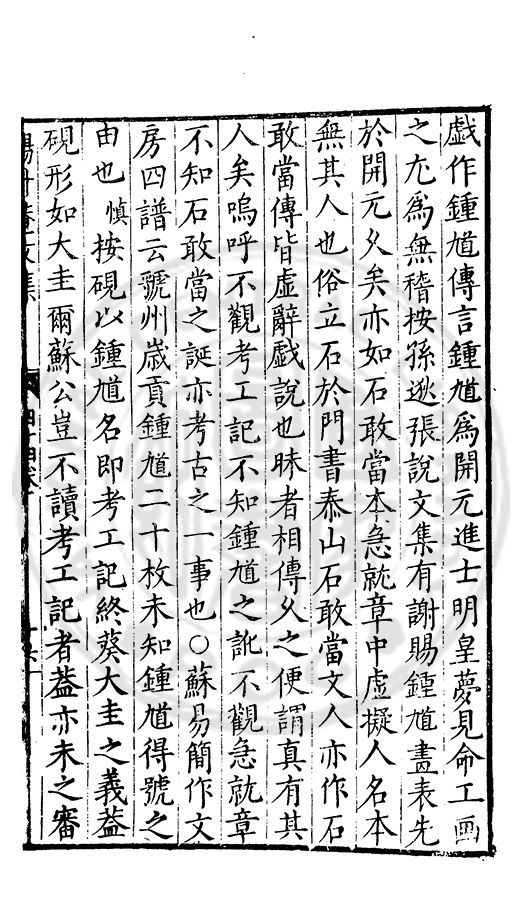 戲作鍾馗傳言鍾馗爲開元進士明皇夢見命工画
之尢爲無稽按孫逖張說文集有謝賜鍾馗畫表先
於開元久矣亦如石敢當本急就章中虛擬人名本
無其人也俗立石於門書泰山石敢當文人亦作石
敢當傳皆虛辭戲說也昧者相傳久之便謂真有其
人矣嗚呼不觀考工記不知鍾馗之訛不觀急就章
不知石敢當之誕亦考古之一事也○蘇易簡作文
房四譜云虢州歲貢鍾馗二十枚未知鍾馗得號之
由也慎按硯以鍾馗名即考工記終葵大圭之義葢
硯形如大圭爾蘇公豈不讀考工記者葢亦未之審